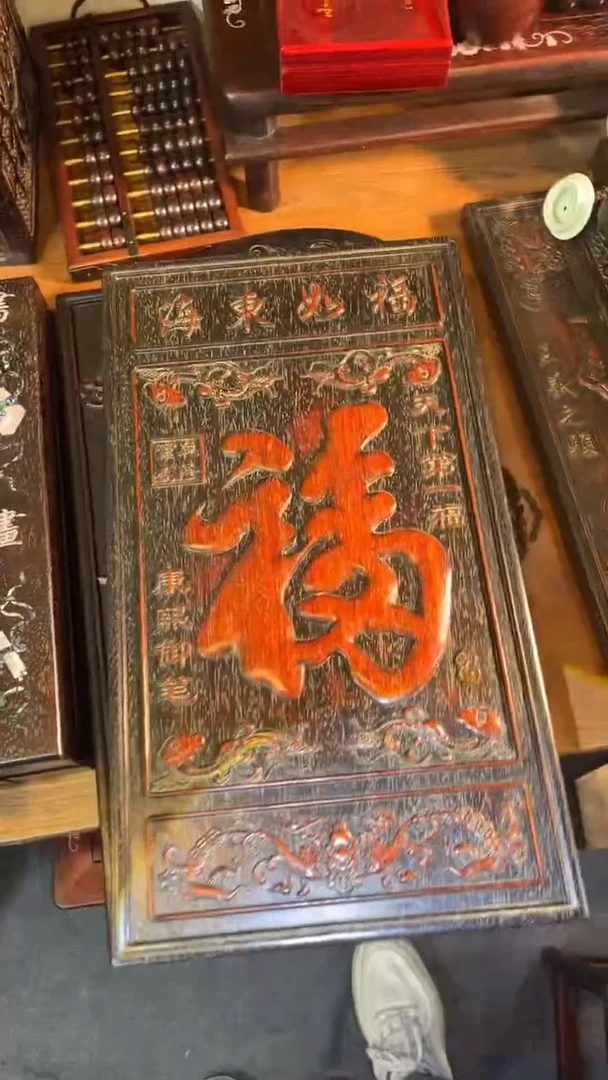 福如東海
天下第一福
福
康熙御笔
書
畫